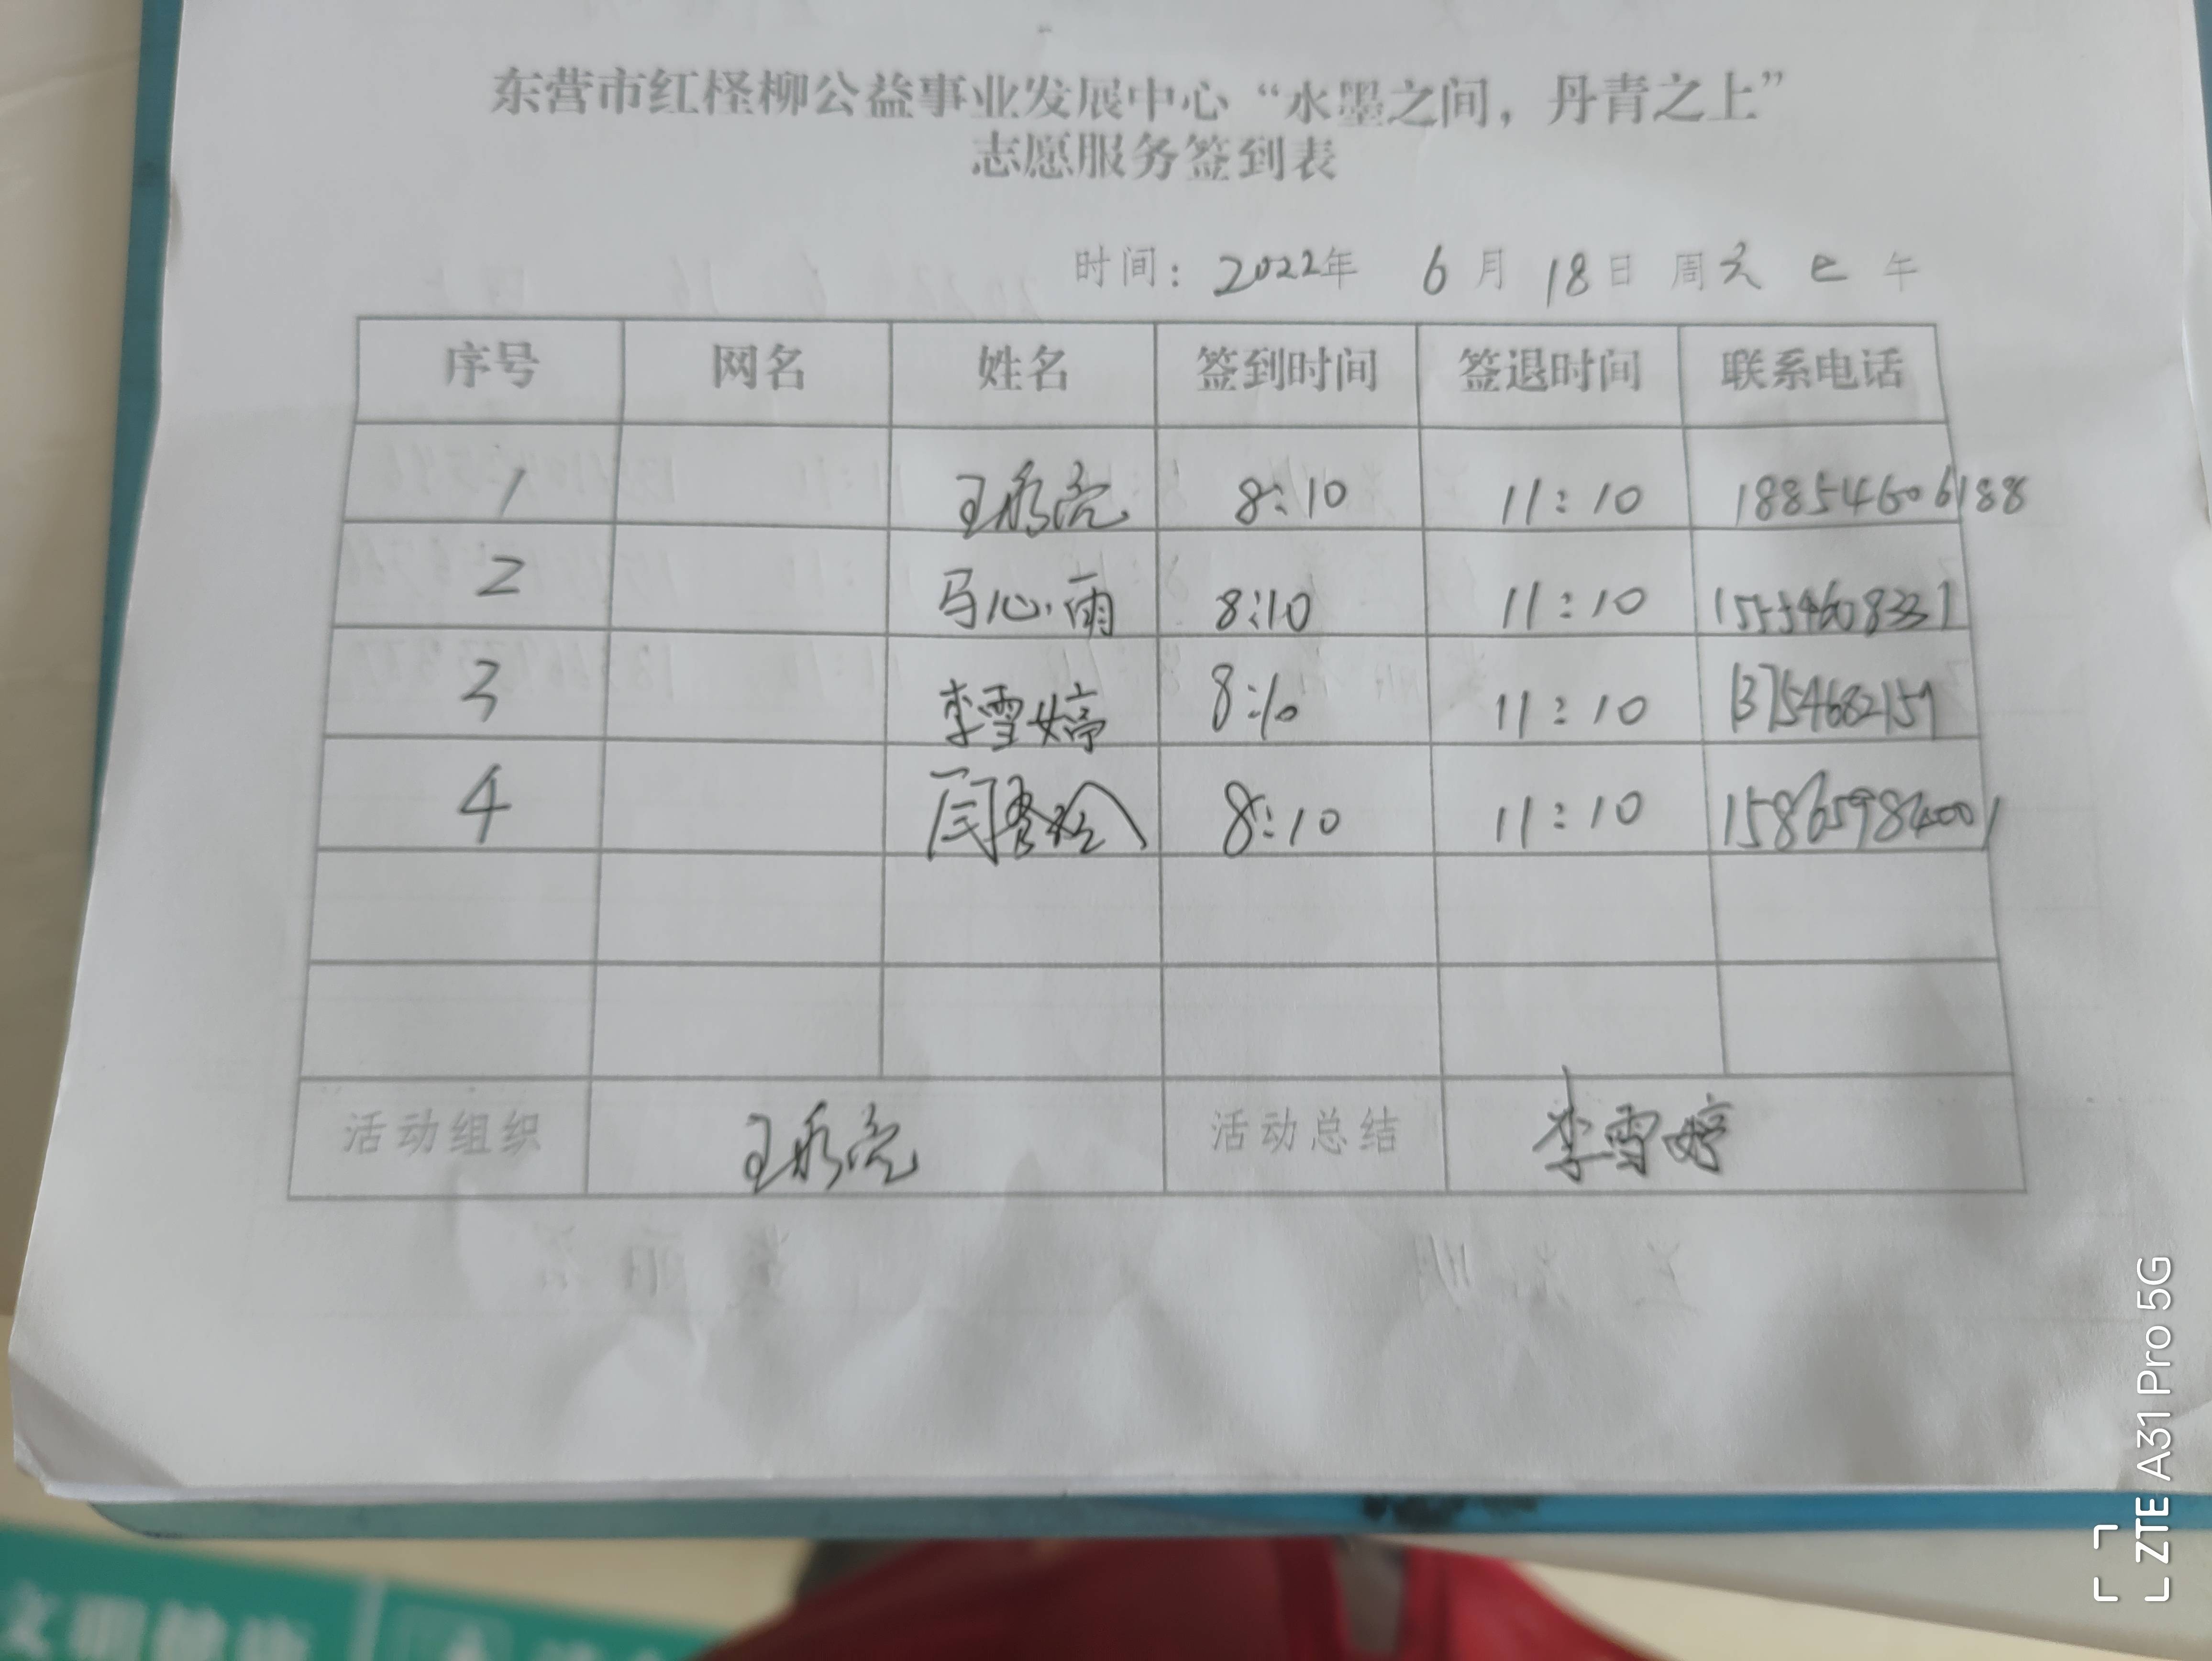 东营市红柽柳公益事业发展中心“水墨之间，丹青之上”
志愿服务签到表
时间：2022年 6月 18日 周六 上午
序号 网名 姓名 签到时间 签退时间 联系电话
1 王 亮 8:10 11:10 18854606188
2 马心雨 8:10 11:10 15554608331
3 李雪婷 8:10 11:10 13754682159
4 闫 8:10 11:10
活动组织 王 亮 活动总结 李雪婷
ZTE A31 Pro 5G